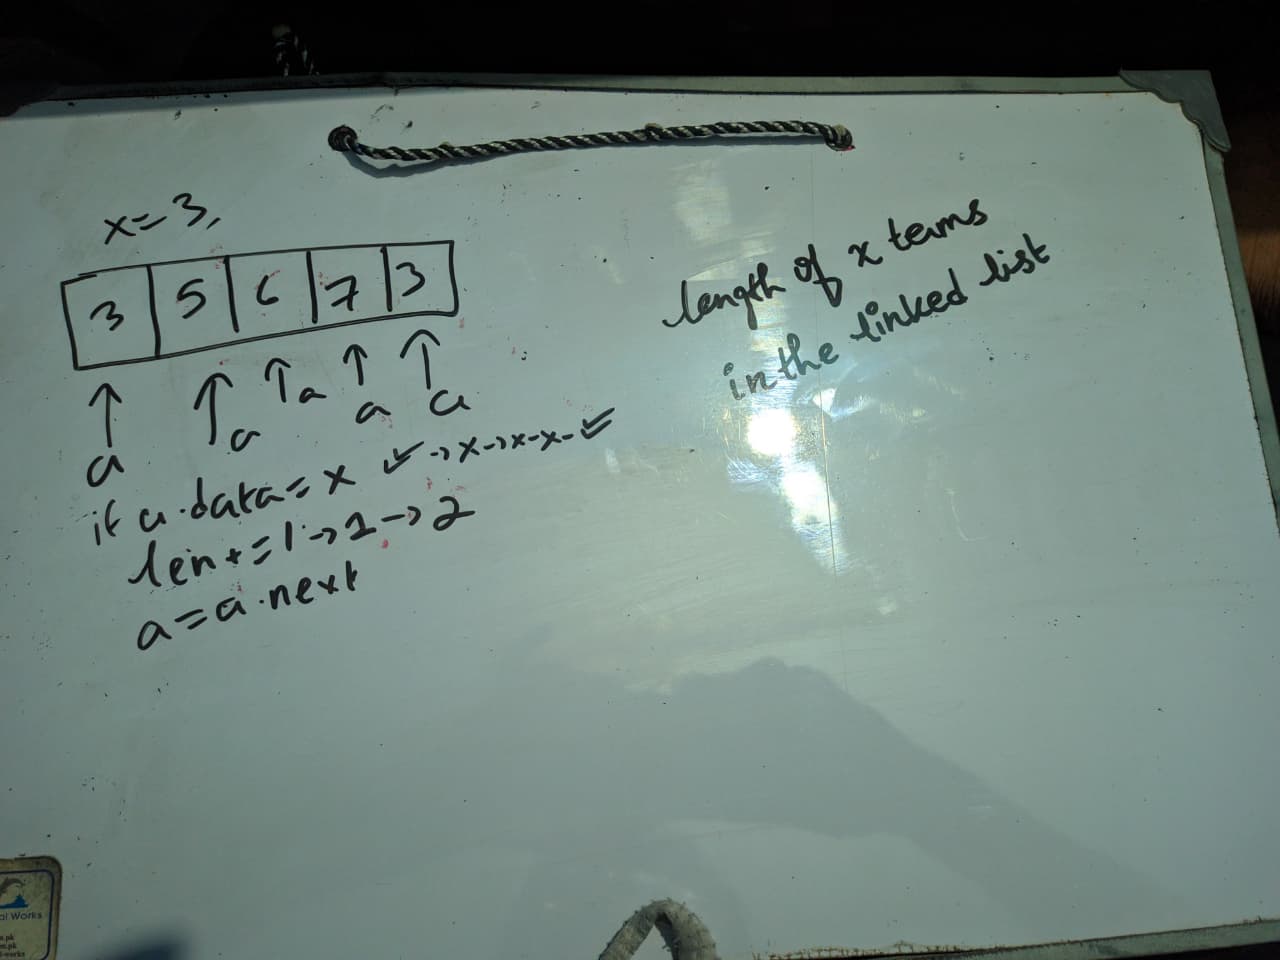 x=3,
3 5 6 7 3
a a a a a
if a.data=x ✓->x->x-x-✓
len+=1->1->2
a=a.next
length of x terms
in the linked list
al Works